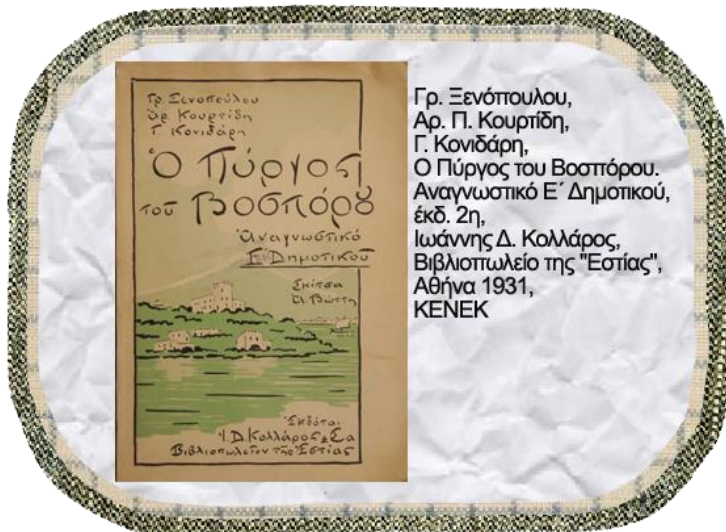 Γρ. Ξενοπούλου
Αρ. Κουρτίδη
Γ. Κονιδάρη
Ὁ Πύργος
τοῦ Βοσπόρου
Ἀναγνωστικὸ
Ε΄ Δημοτικοῦ
Σκίτσα
Α. Βώττη
Ἐκδόται
Ι. Δ. Κολλάρος & Σία
Βιβλιοπωλεῖον τῆς Ἑστίας
Γρ. Ξενόπουλου,
Αρ. Π. Κουρτίδη,
Γ. Κονιδάρη,
Ο Πύργος του Βοσπόρου.
Αναγνωστικό Ε΄ Δημοτικού,
έκδ. 2η,
Ιωάννης Δ. Κολλάρος,
Βιβλιοπωλείο της "Εστίας",
Αθήνα 1931,
ΚΕΝΕΚ